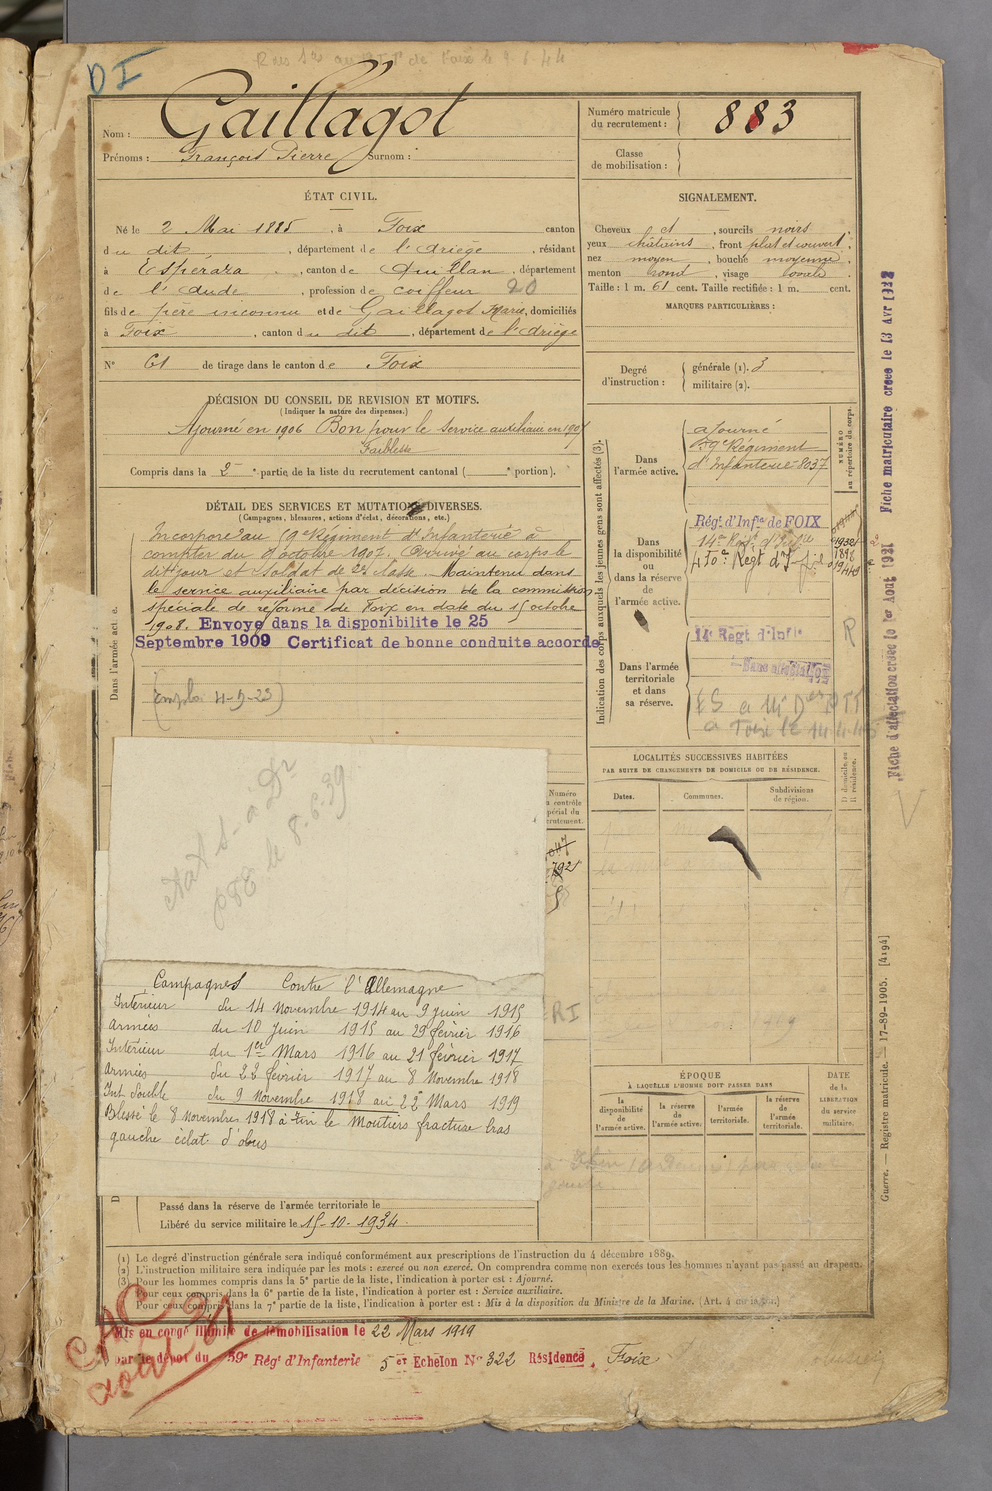 DI
Nom : Gaillagot
Prénoms : François Pierre Surnom :
Numéro matricule du recrutement : 883
Classe de mobilisation :
ÉTAT CIVIL.
Né le 2 Mai 1885, à Foix canton
du dit, département de l'Ariège, résidant
à Espéraza, canton de Quillan, département
de l'Aude, profession de coiffeur 20
fils de père inconnu et de Gaillagot Marie, domiciliés
à Foix, canton du dit, département de l'Ariège
N° 61 de tirage dans le canton de Foix
SIGNALEMENT.
Cheveux et, sourcils noirs
yeux châtains, front plat et ouvert,
nez moyen, bouche moyenne,
menton rond, visage ovale.
Taille : 1 m. 61 cent. Taille rectifiée : 1 m. cent.
MARQUES PARTICULIÈRES :
Degré d'instruction :
générale (1). 3
militaire (2).
DÉCISION DU CONSEIL DE REVISION ET MOTIFS.
(Indiquer la nature des dispenses.)
Ajourné en 1906 Bon pour le service auxiliaire en 1907
Faiblesse
Compris dans la 2e partie de la liste du recrutement cantonal ( e portion).
DÉTAIL DES SERVICES ET MUTATIONS DIVERSES.
(Campagnes, blessures, actions d'éclat, décorations, etc.)
Incorporé au 59e Régiment d'Infanterie à
compter du 9 octobre 1907. Arrivé au corps le
dit jour et Soldat de 2e classe. Maintenu dans
le service auxiliaire par décision de la commission
spéciale de réforme de Foix en date du 15 octobre
1908. Envoye dans la disponibilite le 25
Septembre 1909 Certificat de bonne conduite accorde
Dans l'armée active.
Indication des corps auxquels les jeunes gens sont affectés (3).
NUMÉRO au répertoire du corps.
Dans l'armée active.
ajourné
59e Régiment
d'Infanterie 8037
Dans la disponibilité ou dans la réserve de l'armée active.
Régt d'Infie de FOIX
14e Regt d'Infie
450e Régt d'I
Dans l'armée territoriale et dans sa réserve.
14e Régt d'Infie
Sans affectation
R
à Foix le 14.4.45
LOCALITÉS SUCCESSIVES HABITÉES
PAR SUITE DE CHANGEMENTS DE DOMICILE OU DE RÉSIDENCE.
Dates.
Communes.
Subdivisions de région.
D domicile ou R résidence.
le 8.6.39
Numéro
RI
Campagnes Contre l'Allemagne
Intérieur du 14 Novembre 1914 au 9 juin 1915
Armées du 10 Juin 1915 au 29 février 1916
Intérieur du 1er Mars 1916 au 21 février 1917
Armées du 22 février 1917 au 8 Novembre 1918
Int Double du 9 Novembre 1918 au 22 Mars 1919
Blessé le 8 Novembre 1918 à Fin le Moutiers fracture bras
gauche éclat d'obus
ÉPOQUE
À LAQUELLE L'HOMME DOIT PASSER DANS
la disponibilité de l'armée active.
la réserve de l'armée active.
l'armée territoriale.
la réserve de l'armée territoriale.
DATE de la LIBÉRATION du service militaire.
Passé dans la réserve de l'armée territoriale le
Libéré du service militaire le 15-10-1934
(1) Le degré d'instruction générale sera indiqué conformément aux prescriptions de l'instruction du 4 décembre 1889.
(2) L'instruction militaire sera indiquée par les mots : exercé ou non exercé. On comprendra comme non exercés tous les hommes n'ayant pas passé au drapeau.
(3) Pour les hommes compris dans la 5e partie de la liste, l'indication à porter est : Ajourné.
Pour ceux compris dans la 6e partie de la liste, l'indication à porter est : Service auxiliaire.
Pour ceux compris dans la 7e partie de la liste, l'indication à porter est : Mis à la disposition du Ministre de la Marine.
Mis en congé illimité de démobilisation le 22 Mars 1919
par le dépôt du 59e Régt d'Infanterie 5 er Echelon N° 322 Résidence, Foix
CAC
août
Fiche d'affectation creee le 1er Aout 1921
Fiche matriculaire creee le 13 Avr 1922
Guerre. — Registre matricule. — 17-89-1905. [4194]